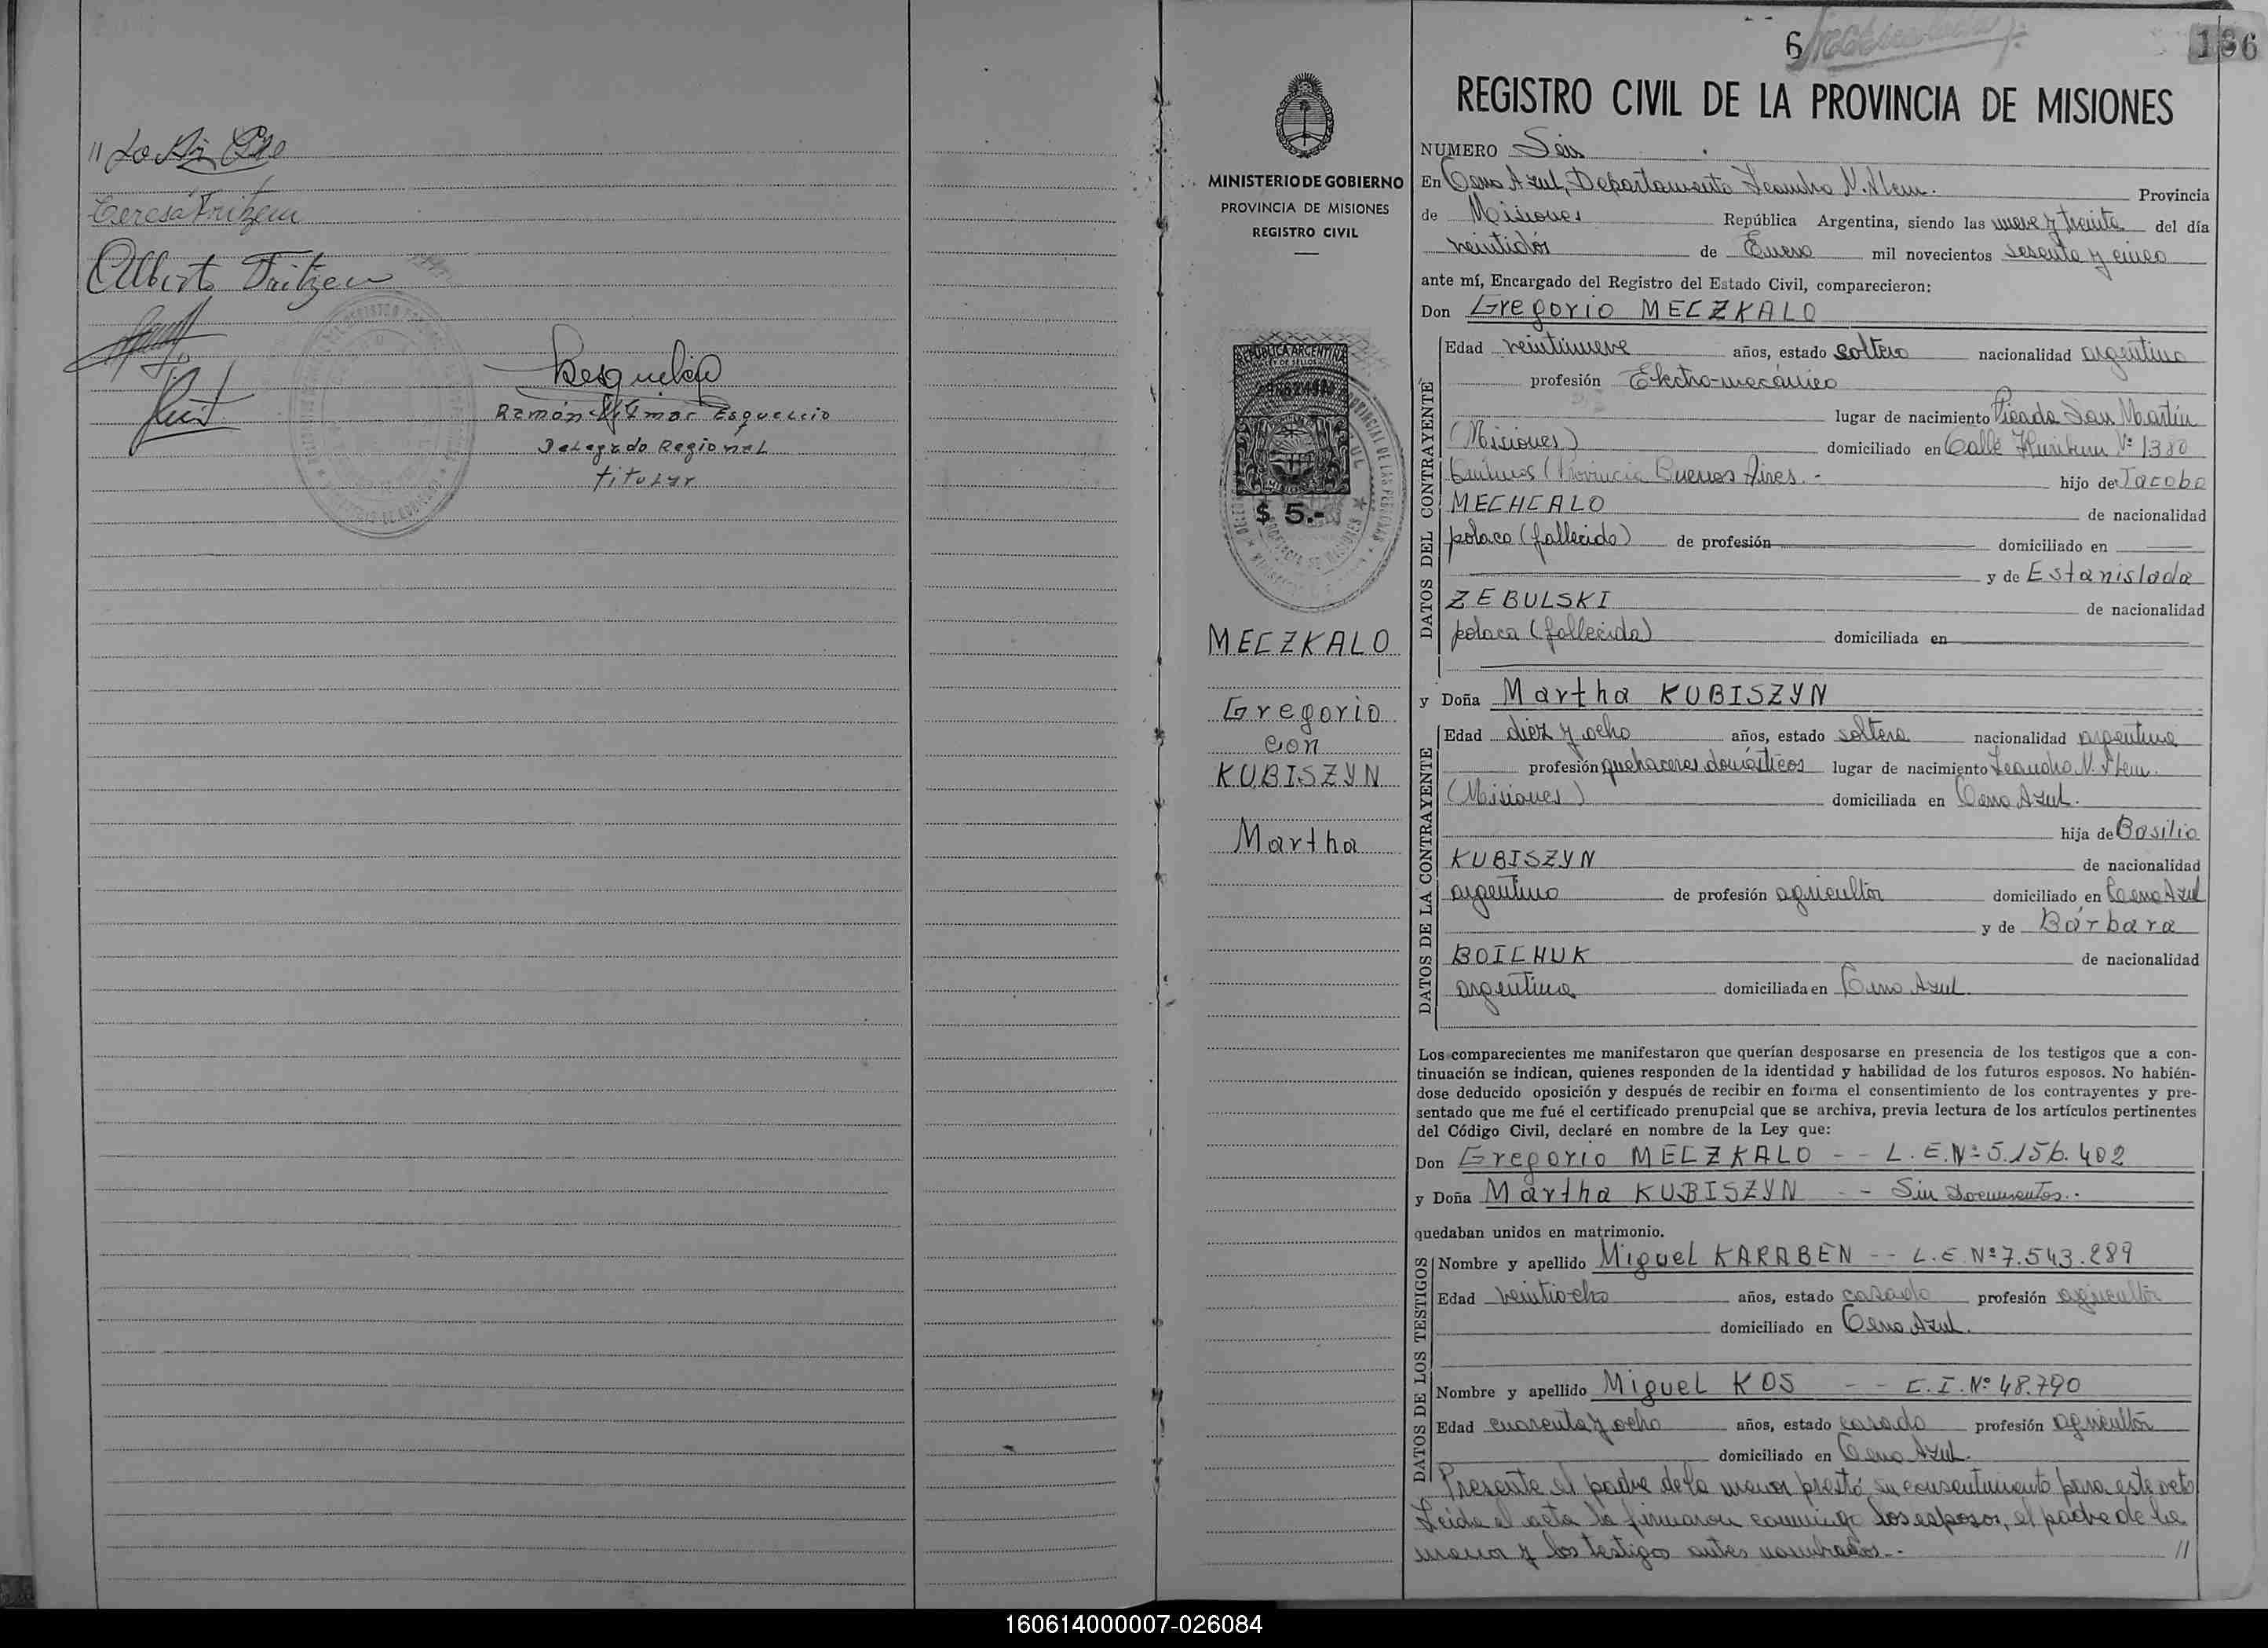 Teresa Fritzen
Alberto Fritzen
Ramón Esquercio
Delegado Regional
titular
MINISTERIO DE GOBIERNO
PROVINCIA DE MISIONES
REGISTRO CIVIL
REPUBLICA ARGENTINA
$ 5.-
MECZKALO
Gregorio
con
KUBISZYN
Martha
6
186
REGISTRO CIVIL DE LA PROVINCIA DE MISIONES
NUMERO Seis
En Cerro Azul, Departamento Leandro N. Alem. Provincia
de Misiones República Argentina, siendo las nueve y treinta del día
veintidós de Enero mil novecientos sesenta y cinco
ante mí, Encargado del Registro del Estado Civil, comparecieron:
Don Gregorio MECZKALO
DATOS DEL CONTRAYENTE
Edad veintinueve años, estado soltero nacionalidad argentino
profesión Electro-mecánico
lugar de nacimiento Picada San Martín
(Misiones) domiciliado en Calle N° 1380
Quilmes (Provincia Buenos Aires.- hijo de Jacobo
MECHCALO de nacionalidad
polaco (fallecido) de profesión domiciliado en
y de Estanislada
ZEBULSKI de nacionalidad
polaca (fallecida) domiciliada en
y Doña Martha KUBISZYN
DATOS DE LA CONTRAYENTE
Edad diez y ocho años, estado soltera nacionalidad argentina
profesión quehaceres domésticos lugar de nacimiento Leandro N. Alem.
(Misiones) domiciliada en Cerro Azul.
hija de Basilio
KUBISZYN de nacionalidad
argentino de profesión agricultor domiciliado en Cerro Azul
y de Bárbara
BOICHUK de nacionalidad
argentina domiciliada en Cerro Azul.
Los comparecientes me manifestaron que querían desposarse en presencia de los testigos que a con-
tinuación se indican, quienes responden de la identidad y habilidad de los futuros esposos. No habién-
dose deducido oposición y después de recibir en forma el consentimiento de los contrayentes y pre-
sentado que me fué el certificado prenupcial que se archiva, previa lectura de los artículos pertinentes
del Código Civil, declaré en nombre de la Ley que:
Don Gregorio MECZKALO -- L.E.N° 5.156.402
y Doña Martha KUBISZYN -- Sin Documentos.-
quedaban unidos en matrimonio.
DATOS DE LOS TESTIGOS
Nombre y apellido Miguel KARABEN -- L.E N° 7.543.289
Edad veintiocho años, estado casado profesión agricultor
domiciliado en Cerro Azul.
Nombre y apellido Miguel KOS -- C.I.N° 48.790
Edad cuarenta y ocho años, estado casado profesión agricultor
domiciliado en Cerro Azul.-
Presente el padre de la menor prestó su consentimiento para este acto
Leída el acta la firmaron conmigo los esposos, el padre de la
menor y los testigos antes nombrados.- //
160614000007-026084